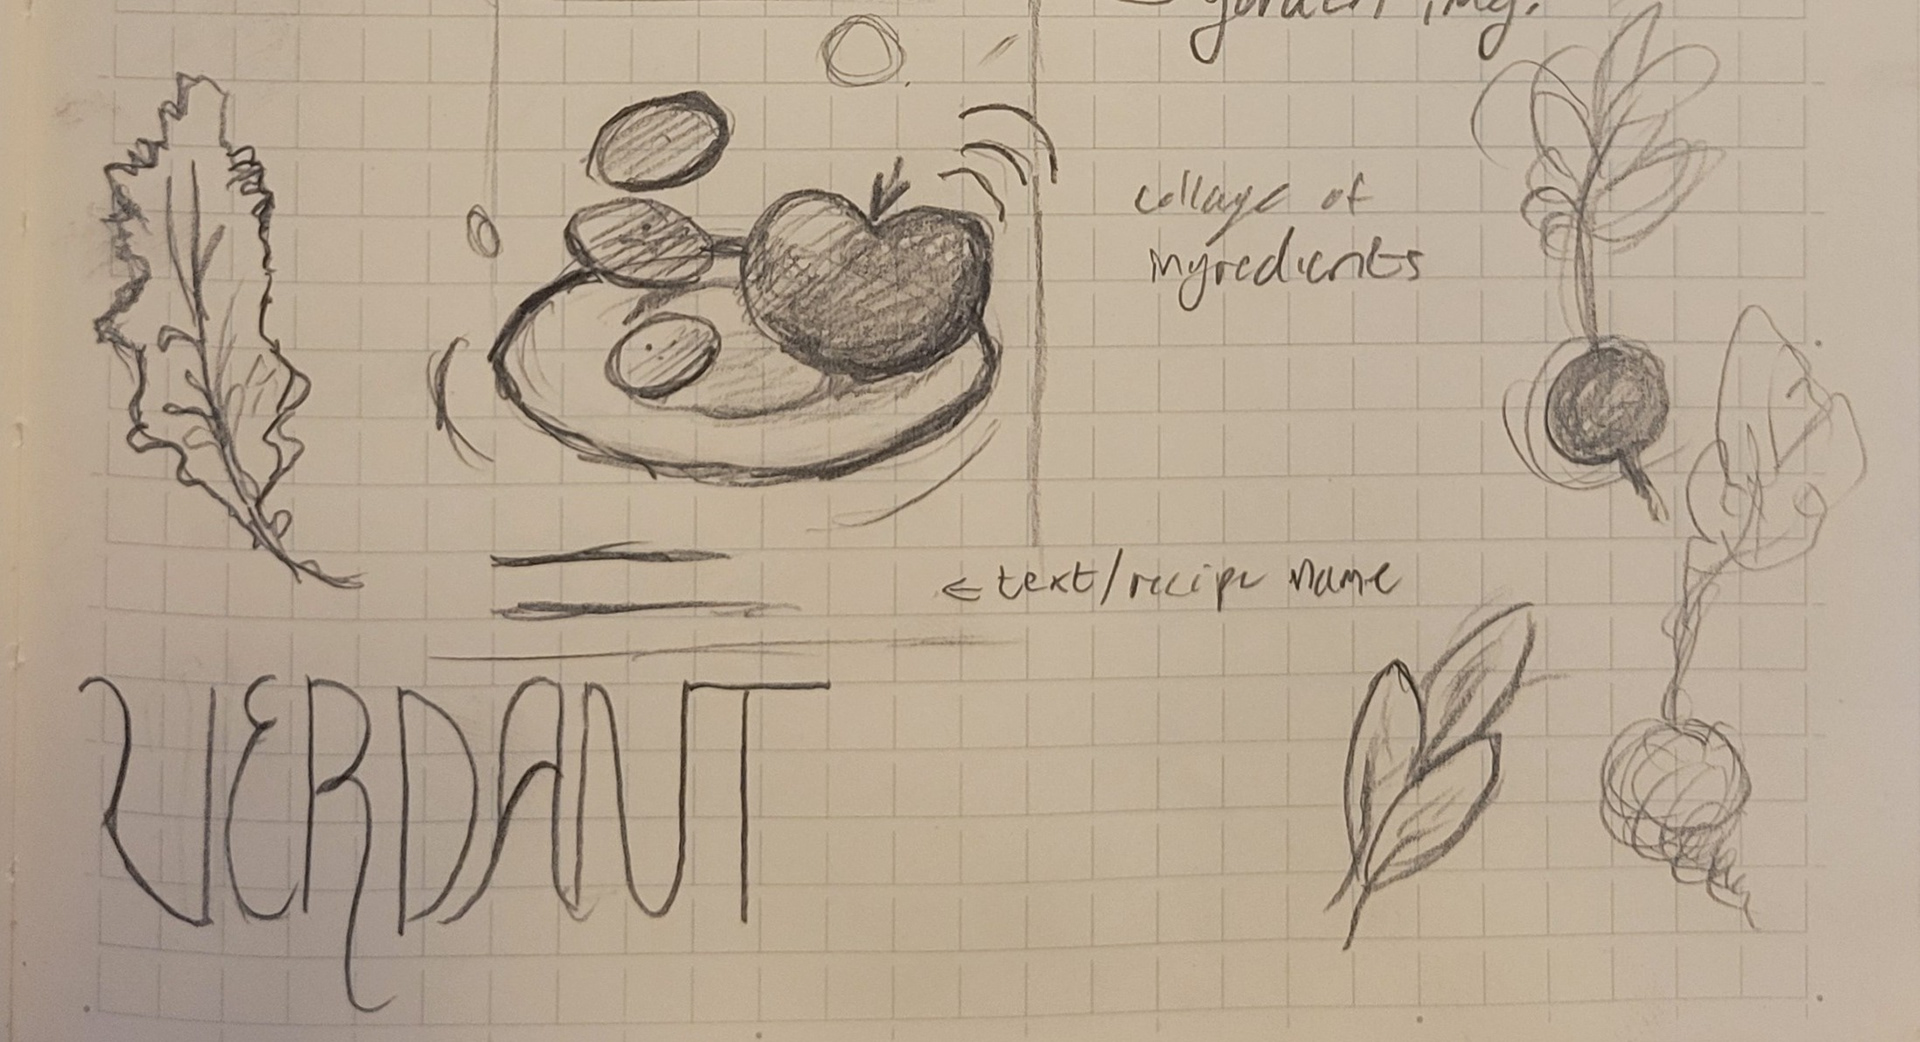 garden img.
collage of
ingredients
← text/recipe name
VERDANT